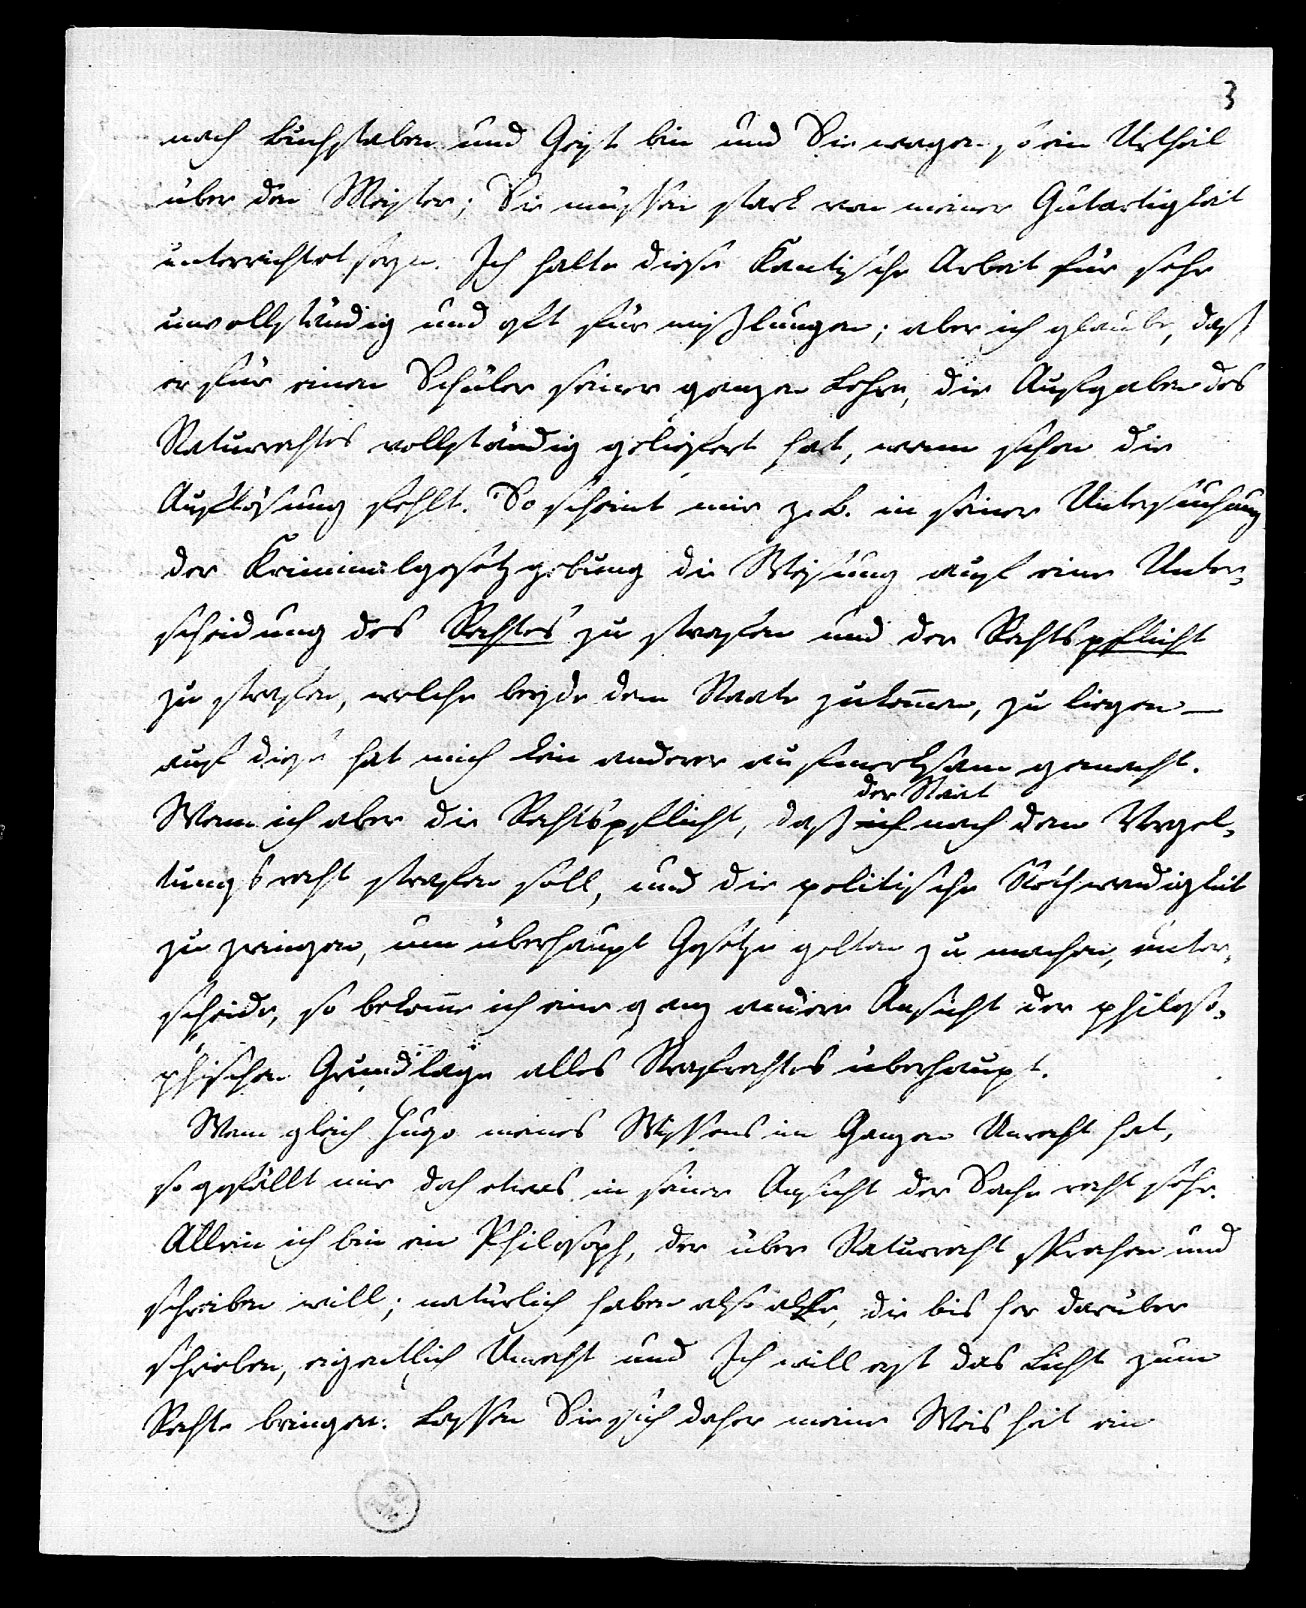 3
nach Buchstaben und Geist bin und Sie wagen so ein Urtheil
über den Meister; Sie müssen stark von meiner Gutartigkeit
unterrichtet seyn. Ich halte diese Kantische Arbeit für sehr
unvollständig und oft für mißlungen; aber ich glaube, daß
er für einen Schüler seiner ganzen Lehre, die Aufgaben des
Naturrechtes vollständig geliefert hat, wenn schon die
Auflösung fehlt. So scheint mir z. B. in seiner Untersuchung
der Kriminalgesetzgebung die Weisung auf eine Unter-
scheidung des Rechtes zu strafen und der Rechtspflicht
zu strafen, welche beyde dem Staate zukom̅en, zu liegen —
auf diese hat mich kein anderer aufmerksam gemacht.
der Staat
Wenn ich aber die Rechtspflicht, daß ich nach dem Vergel-
tungsrecht strafen soll, und die politische Nothwendigkeit
zu zwingen, um überhaupt Gesetze gelten zu machen, unter-
scheide, so bekom̅e ich eine ganz andere Ansicht der philoso-
phischen Grundlage alles Strafrechtes überhaupt.
Wenn gleich Hugo meines Wissens im Ganzen Unrecht hat,
so gefällt mir doch etwas in seiner Ansicht der Sache recht sehr.
Allein ich bin ein Philosoph, der über Naturrecht sprechen und
schreiben will; natürlich haben also alle, die bis her darüber
schrieben, eigentlich Unrecht und Ich will erst das Licht zum
Rechte bringen. Lassen Sie sich daher meine Weisheit ein